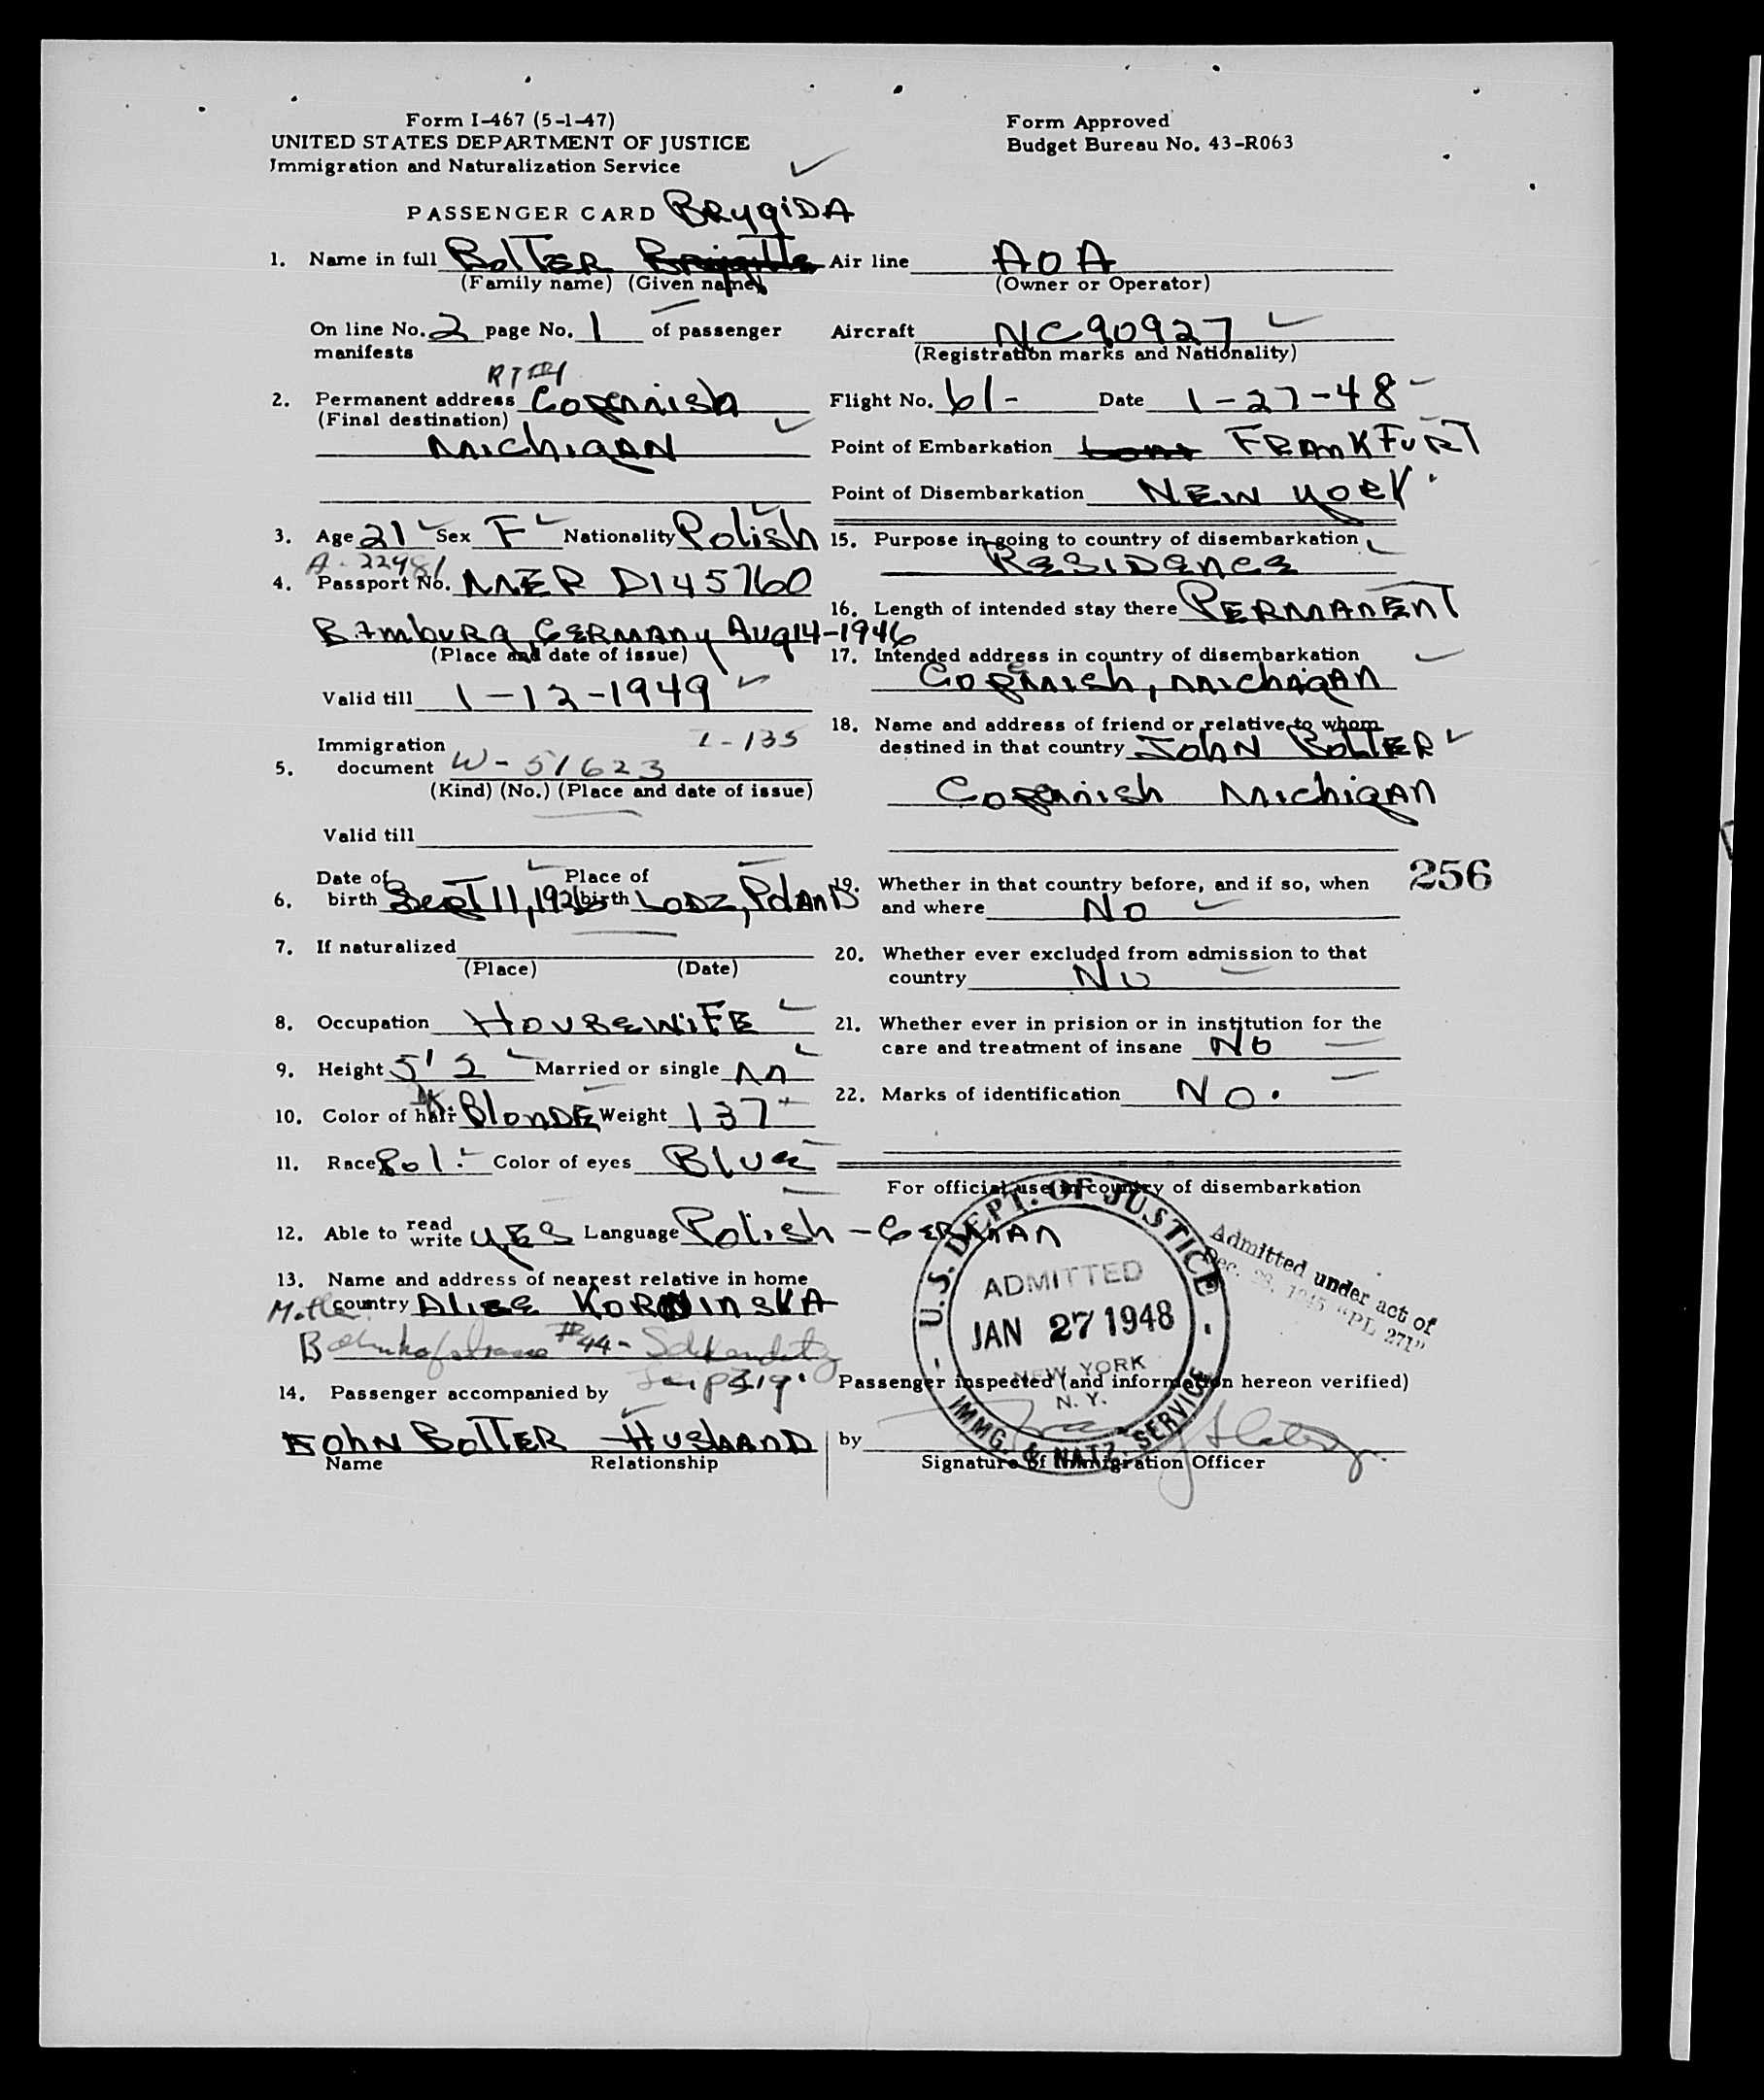 Form I-467 (5-1-47)
UNITED STATES DEPARTMENT OF JUSTICE
Immigration and Naturalization Service
Form Approved
Budget Bureau No. 43-R063
PASSENGER CARD BRygiDA
1. Name in full BolTER Brigitte
(Family name) (Given name)
On line No. 2 page No. 1 of passenger
manifests
RT#1
2. Permanent address Copemish
(Final destination)
MichigAN
3. Age 21 Sex F Nationality Polish
A-22981
4. Passport No. MER D145760
BAmburg, GERMANy Aug 14-1946
(Place and date of issue)
Valid till 1-12-1949
Immigration I-135
5. document W-51623
(Kind) (No.) (Place and date of issue)
Valid till
Date of Place of
6. birth Sept 11, 1926 birth LODZ, PolAnD
7. If naturalized
(Place) (Date)
8. Occupation HOUSEWIFE
9. Height 5' 2 Married or single M
10. Color of hair DK. BlonDE Weight 137
11. Race Pol. Color of eyes Blue
12. Able to read write yES Language Polish - GERMAN
13. Name and address of nearest relative in home
Mother country AlicE KORNinskA
Bahnhofstrasse #44- Schkeuditz
Leipzig.
14. Passenger accompanied by
JOhN BolTER Husband
Name Relationship
Air line AOA
(Owner or Operator)
Aircraft NC90927
(Registration marks and Nationality)
Flight No. 61- Date 1-27-48
Point of Embarkation FRAnkFuRT
Point of Disembarkation NEW yoRk
15. Purpose in going to country of disembarkation
RESIDEnCE
16. Length of intended stay there PERMAnEnT
17. Intended address in country of disembarkation
Copemish, MichigAN
18. Name and address of friend or relative to whom
destined in that country JohN BolTER
Copemish MichigAN
256
19. Whether in that country before, and if so, when
and where No
20. Whether ever excluded from admission to that
country No
21. Whether ever in prision or in institution for the
care and treatment of insane No
22. Marks of identification No.
For official use in country of disembarkation
U.S. DEPT. OF JUSTICE
ADMITTED
JAN 27 1948
NEW YORK
N. Y.
IMMG. & NATZ. SERVICE
Admitted under act of
Dec. 28, 1945 "PL 271"
Passenger inspected (and information hereon verified)
by
Signature of Immigration Officer